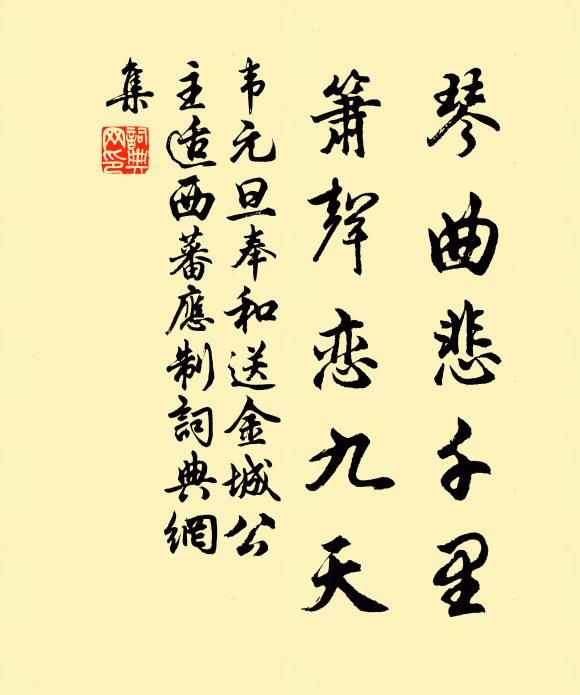 琴曲悲千里
簫聲恋九天
韦元旦奉和送金城公
主适西蕃應制詞典網
集
詞典
网印